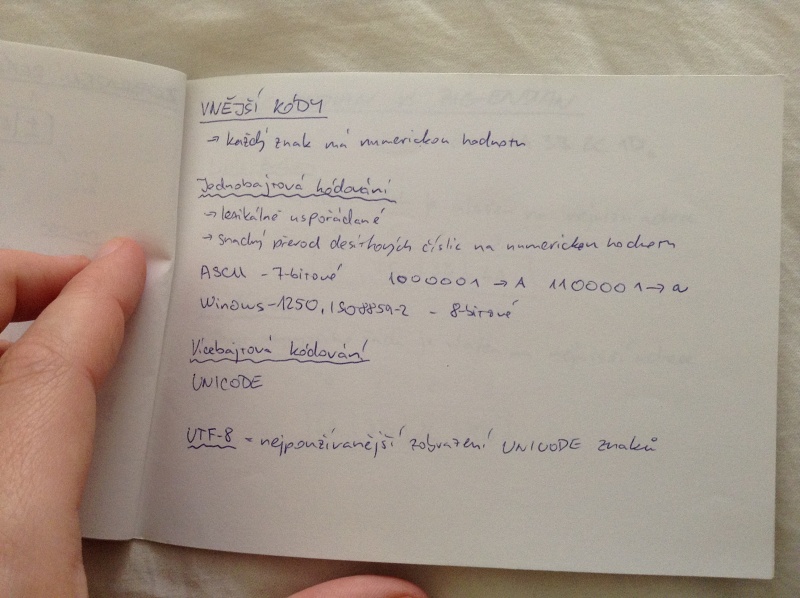 VNĚJŠÍ KÓDY
→ každý znak má numerickou hodnotu
Jednobajtová kódování
→ lexikálně uspořádané
→ snadný převod desítkových číslic na numerickou hodnotu
ASCII - 7-bitové 1000001 → A 1100001 → a
Windows-1250, ISO8859-2 - 8-bitové
Vícebajtová kódování
UNICODE
UTF-8 = nejpoužívanější zobrazení UNICODE znaků